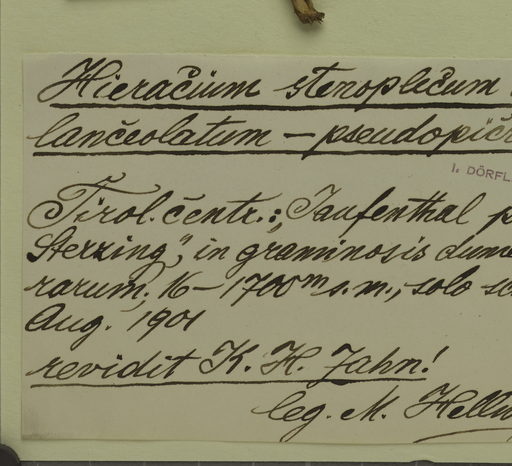 Hieračium stenoplečum
lančeolatum — pseudopičr
I. DÖRFL
Tirol. čentr.: „Jaufenthal p
Sterzing", in graminosis dume
rarum, 16–1700m s.m., solo sc
Aug. 1901
revidit K. H. Zahn!
leg. M. Hellw